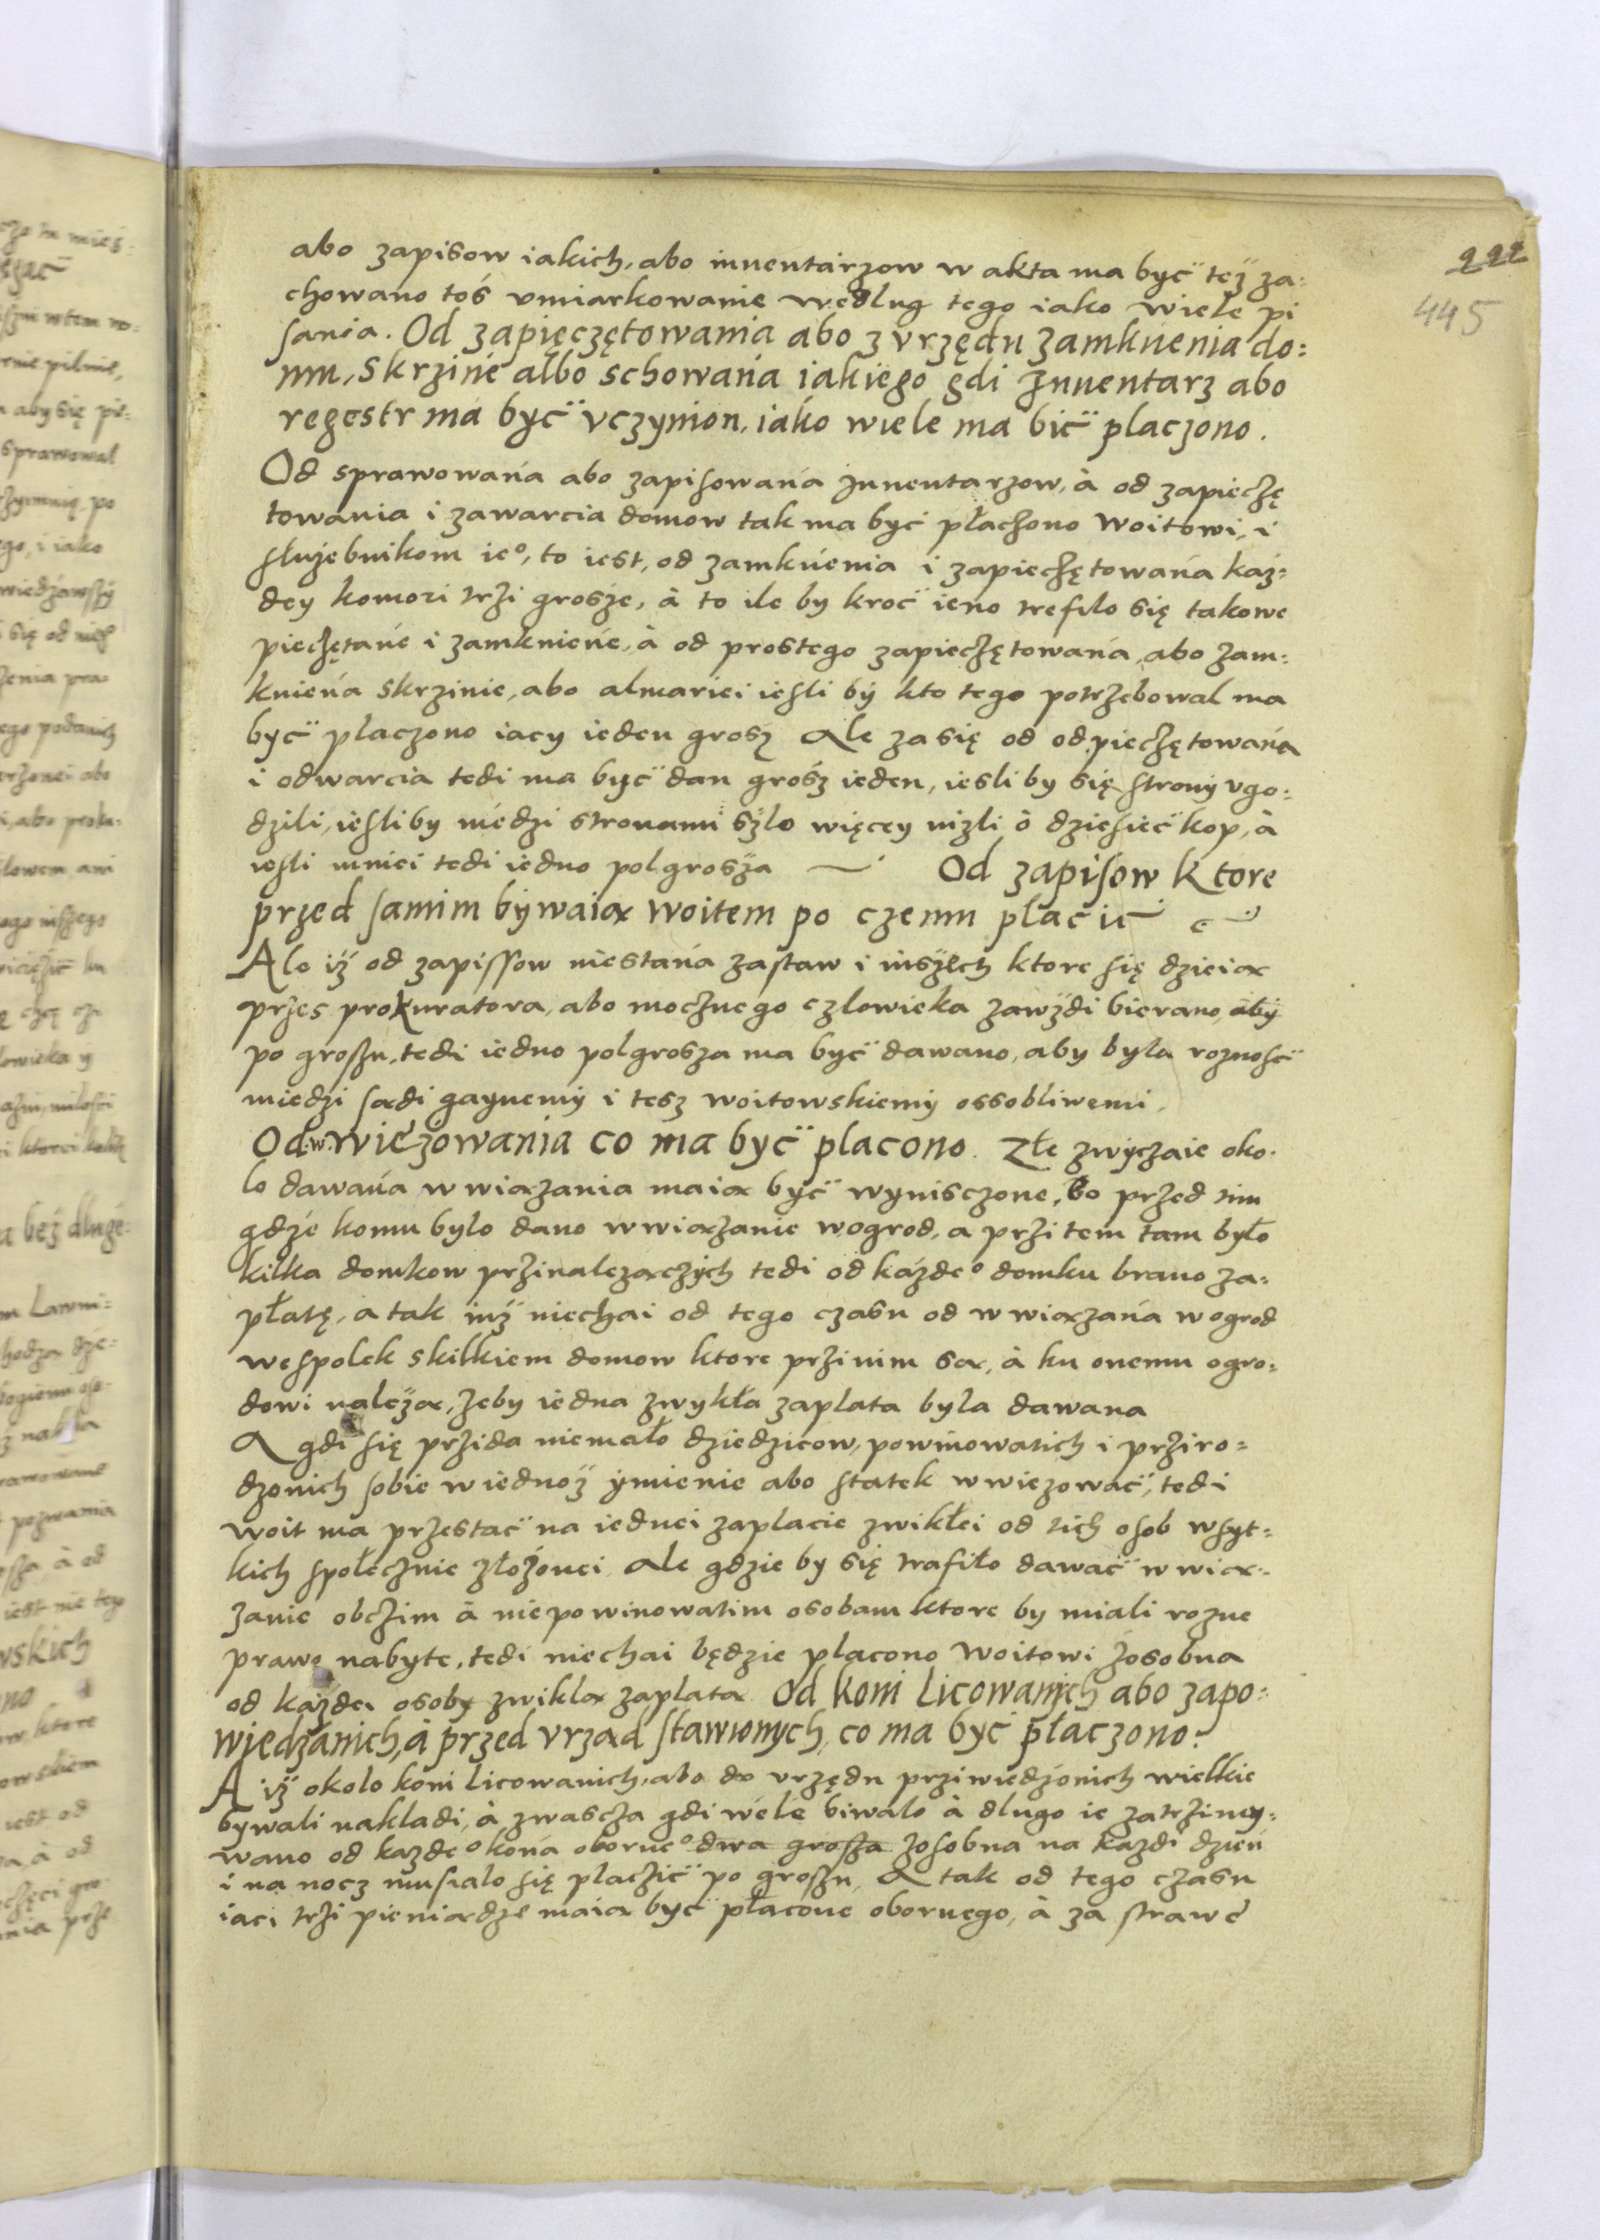 222
445
abo zapisow iakich, abo inuentarzow w akta ma być też za:
chowano toś vmiarkowanie według tego iako wiele pi
sania. Od zapięczętowania abo z vrzędu zamknienia do:
mu, skrzinie albo schowańa iakiego gdi Jnuentarz abo
regestr ma być vczynion, iako wiele ma bić placzono.
Od sprawowańa abo zapisowańa Jnuentarzow, à od zapieczę
towania i zawarcia domow tak ma być płaczono Woitowi, i
służebnikom ie°, to iest, od zamknienia i zapieczętowańa każ:
dey komori trzi grosze, à to ile by kroć ieno trefilo się takowe
pieczętańe i zamknieńe, à od prostego zapieczętowańa, abo zam:
knieńa skrzinie, abo almariei iesli by kto tego potrzebowal ma
być placzono iacy ieden grosz Ale zasię od odpieczętowańa
i odwarcia tedi ma być dan grosz ieden, iesli by się strony vgo:
dzili, iesliby miedzi stronami szlo więcey nizli o dziesieć kop, à
iesli mniei tedi iedno polgrosza Od zapisow Ktore
przed samim bywaią woitem po czemu placić
Ale iż od zapissow niestańa zastaw i inszych ktore się dzieią
przes prokuratora, abo mocznego czlowieka zawżdi bierano aby
po groszu, tedi iedno polgrosza ma być dawano, aby byla roznosć
miedzi sądi gaynemy i tesz woitowskiemy ossobliwemi.
Od wwiezowania co ma być placono. Złe zwyczaie oko:
lo dawańa wwiązania maią być wynisczone, bo przed tim
gdzie komu bylo dano wwiązanie w ogrod, a przi tem tam było
kilka domkow przinalezączych tedi od każde° domku brano za:
płatę, a tak iuż niechai od tego czasu od wwiązańa w ogrod
wespolek skilkiem domow ktore przi nim są, à ku onemu ogro:
dowi należą, żeby iedna zwykła zaplata byla dawana
A gdi się przida niemało dziedzicow, powinowatich i prziro:
dzonich sobie w iednoż ymienie abo statek wwiezować, tedi
woit ma przestać na iednei zaplacie zwikłei od tich osob wsyt:
kich społecznie złożonei Ale gdzie by się trafiło dawać wwią:
zanie obczim à niepowinowatim osobam ktore by miali rozne
prawo nabyte, tedi niechai będzie placono Woitowi zosobna
od każdei osoby zwiklą zaplata Od koni licowanych abo zapo:
wiedzanich, à przed vrząd stawionych, co ma być płaczono.
A iż okolo koni licowanich, abo do vrzędu przi wiedzonich wielkie
bywali nakladi, à zwascza gdi wiele biwalo à dlugo ie zatrzimy:
wano od kazde° końa oborne° dwa grosza zosobna na kazdi dzień
i na nocz musialo się placzić po groszu, A tak od tego czasu
iaci trzi pieniądze maią być płacone obornego, à za strawe